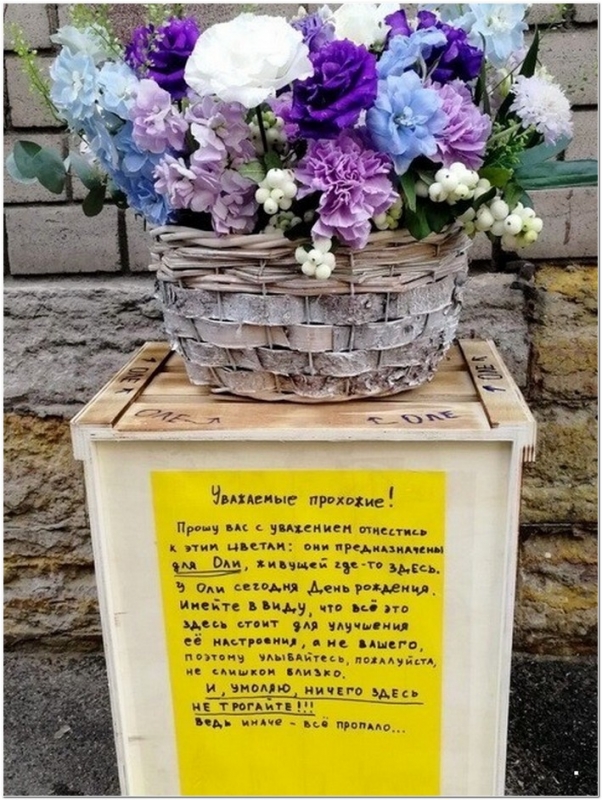 ОЛЕ К
ОЛЕ
ОЛЕ
ОЛЕ
Уважаемые прохожие!
Прошу вас с уважением отнестись
к этим цветам: они предназначены
для Оли, живущей где-то здесь.
У Оли сегодня День рождения.
Имейте в виду, что всё это
здесь стоит для улучшения
её настроения, а не вашего,
поэтому улыбайтесь, пожалуйста,
не слишком близко.
И, умоляю, ничего здесь
не трогайте!!!
Ведь иначе - всё пропало...